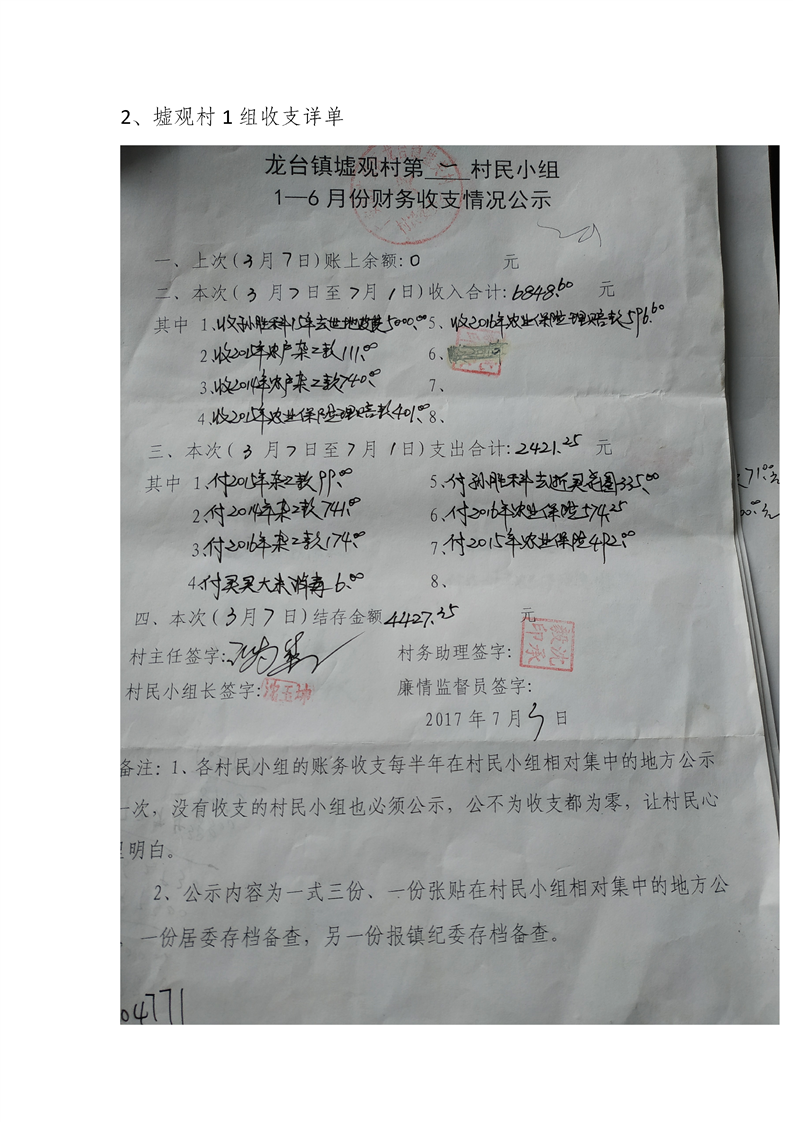 2、墟观村1组收支详单
龙台镇墟观村第 一 村民小组
1—6月份财务收支情况公示
一、上次(3月7日)账上余额:0 元
二、本次(3月7日至7月1日)收入合计:6848.60 元
其中 1、收孙胜科15年 5000.00 5、收2016年农业保险理赔款596.60
2、收2015年农户杂工款111.00 6、
3、收2014年农户杂工款740.00 7、
4、收2015年农业保险理赔款401.00 8、
三、本次(3月7日至7月1日)支出合计:2421.25 元
其中 1、付2015年杂工款99.00 5、付孙胜科去逝灵花圈335.00
2、付2014年杂工款741.00 6、付2016年农业保险574.25
3、付2016年杂工款174.00 7、付2015年农业保险492.00
4、付灵灵大米消毒6.00 8、
四、本次(3月7日)结存金额4427.35 元
村主任签字: 村务助理签字:
村民小组长签字:沈玉坤 廉情监督员签字:
2017年7月3日
备注:1、各村民小组的账务收支每半年在村民小组相对集中的地方公示
一次,没有收支的村民小组也必须公示,公不为收支都为零,让村民心
里明白。
2、公示内容为一式三份、一份张贴在村民小组相对集中的地方公
,一份居委存档备查,另一份报镇纪委存档备查。
04771